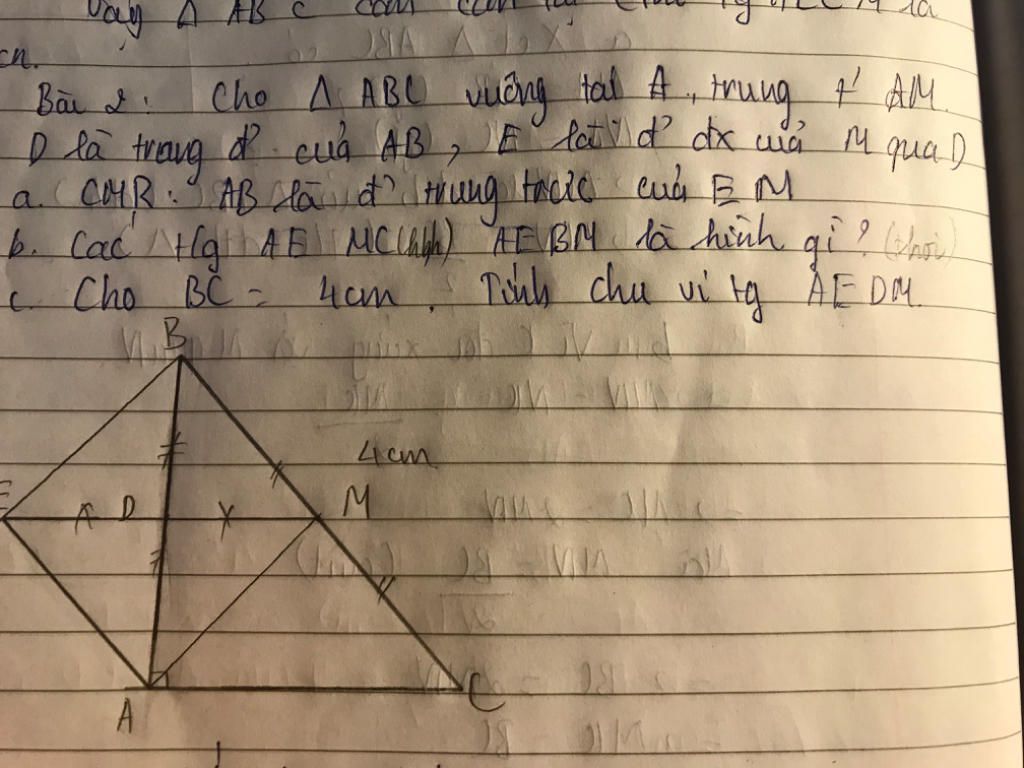 vậy Δ ABC
cn.
Bài 2: Cho Δ ABC vuông tại A, trung t' AM.
D là trung đ' của AB, E là đ' đx của M qua D
a. CMR: AB là đ' trung trực của EM
b. Các tg AEMC (hbh) AEBM là hình gì? (thoi)
c. Cho BC = 4cm. Tính chu vi tg AEDM.
B
4cm
E D M
A C